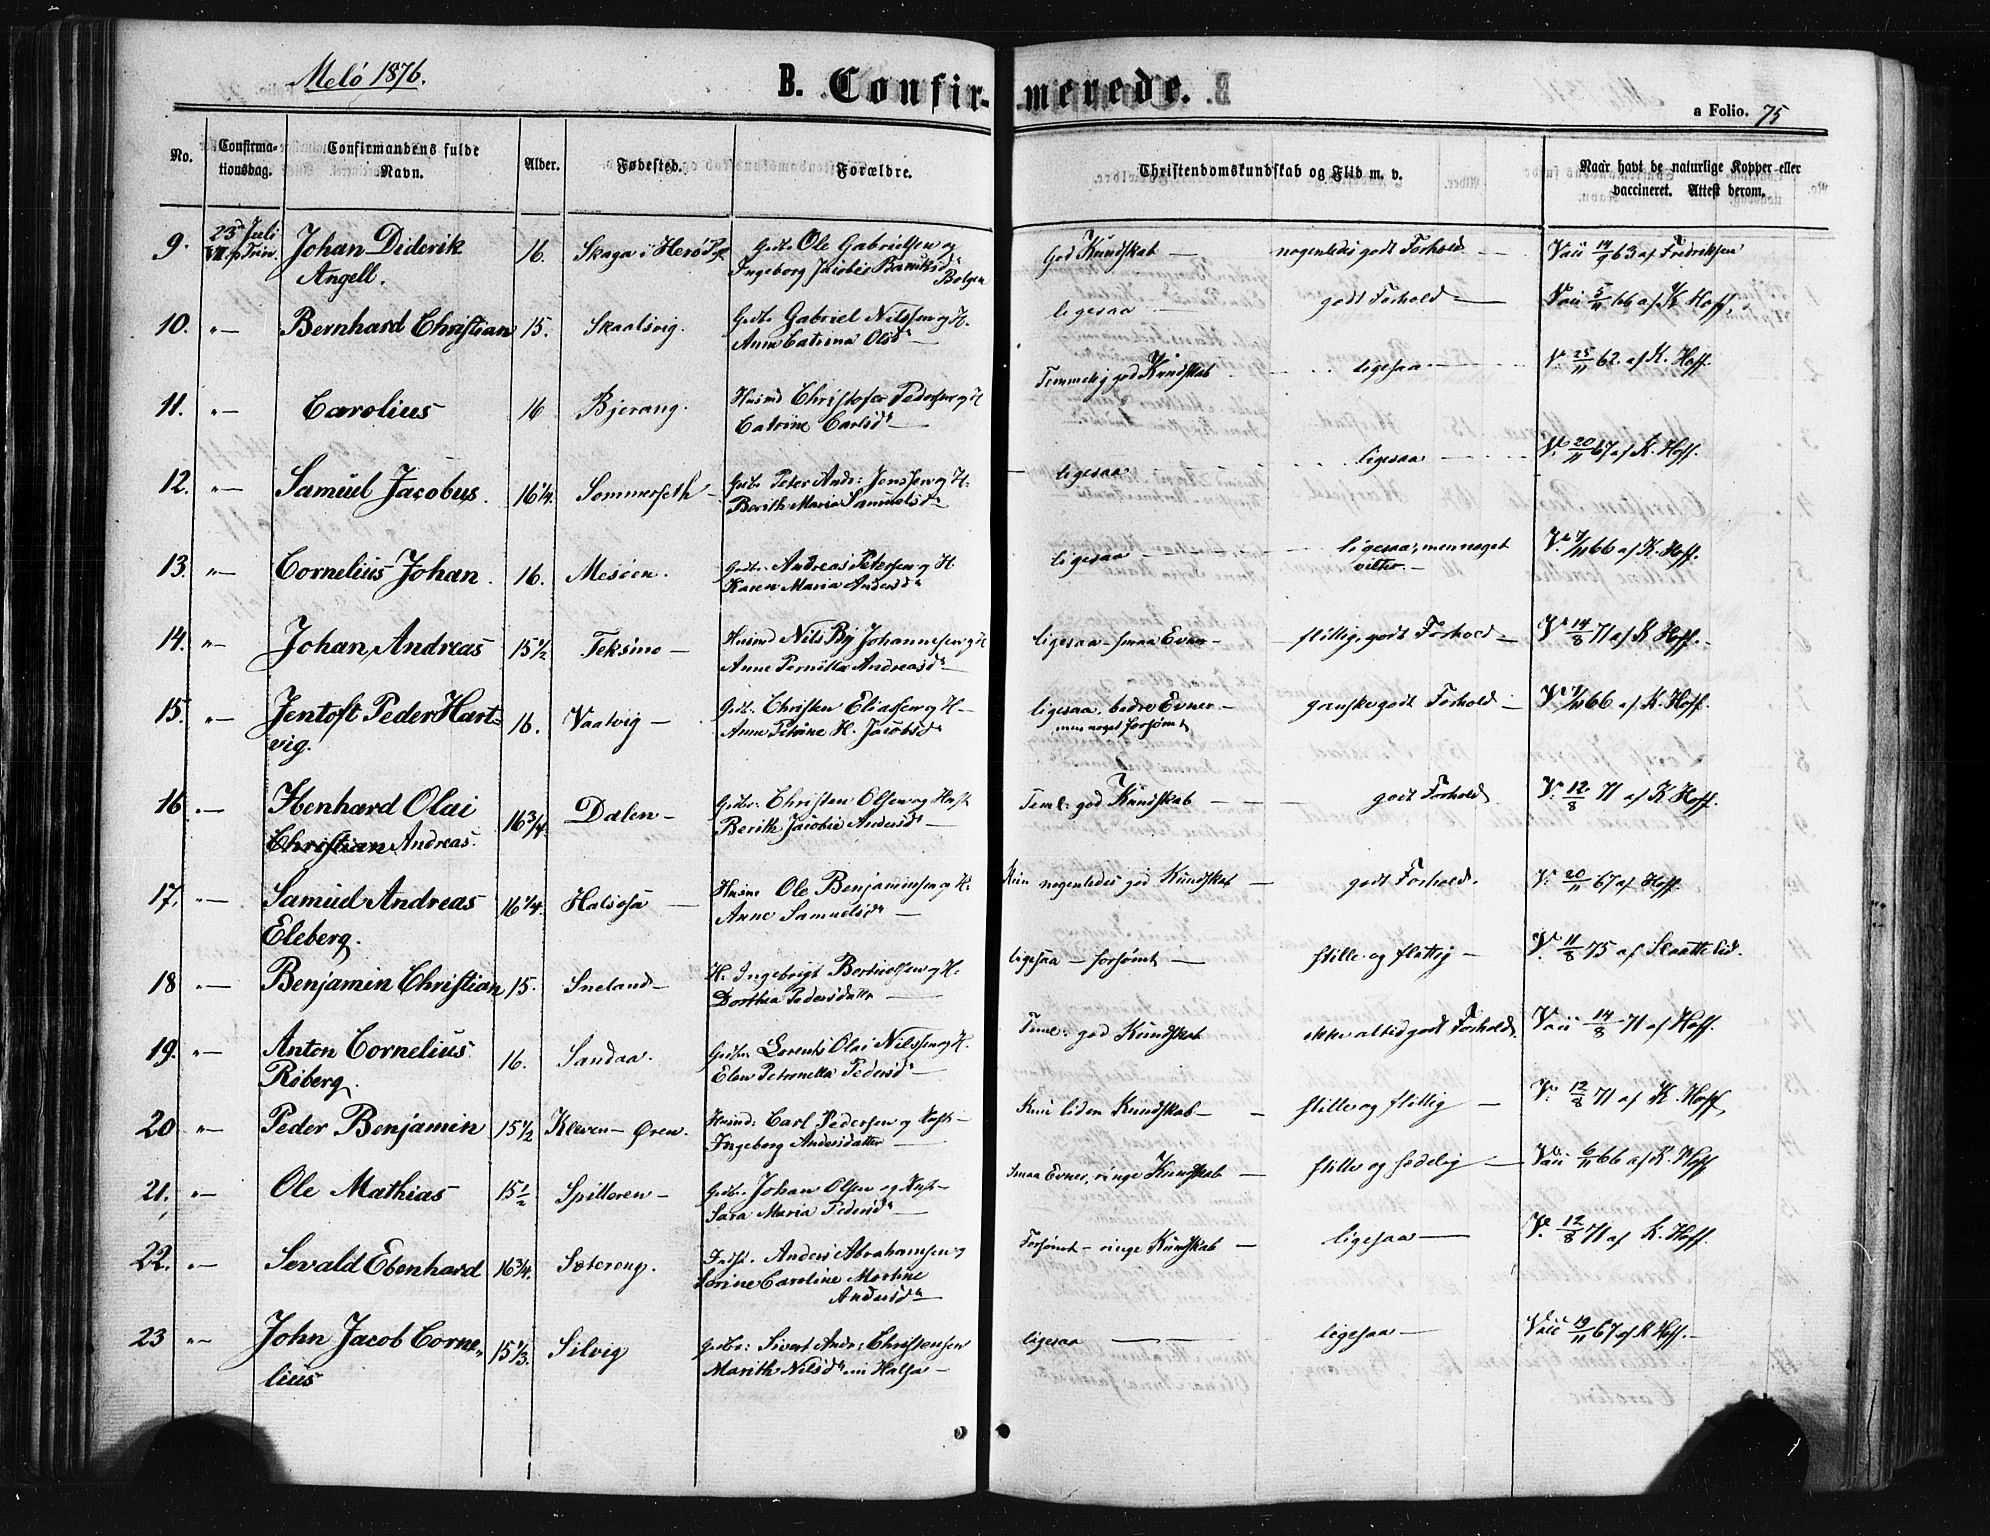 Melö 1876.
B. Confir- merede.
a Folio. 75
No. Confirma-tionsdag. Confirmandens fulde Navn. Alder. Fødested. Forældre. Christendomskundskab og Flid m. v. Naar havt de naturlige Kopper eller vaccineret. Attest derom.
9. 23 Juli Johan Diderik 16. Skaga i Herö Gdbr. Ole Gabrielsen og God Kundskab — nogenledes godt Forhold — Vacc 14/9 63 af Fredriksen
VI p Trin. Angell. Ingeborg Jacobie
10. " — Bernhard Christian 15. Skaalsvig. Gdbr. Gabriel Nilssen og H. ligesaa — godt Forhold — Vacc 5/11 66 af K Hoff.
Anne Catrina Olsd.
11. " — Carolius 16 Bjerang. Husmd Christofer Pedersen og H Temmelig god Kundskab ligesaa — V. 25/11 62. af K. Hoff.
Catrine Carlsd.
12. " — Samuel Jacobus. 16 1/4. Sommerseth — Gdbr. Peter Andr: Jenssen og H. ligesaa ligesaa — V. 20/11 67 af K. Hoff.
Berith Maria Samuelsd.
13. " — Cornelius Johan. 16. Mesöen. Gdbr. Andreas Petersen og H ligesaa — ligesaa, men noget V. 7/11 66 af K. Hoff.
Karen Maria Andersd.
14. " — Johan Andreas 15 1/2 Teksmo — Husmd Nils Bj Johannesen og H ligesaa — smaa Evner — flittig, godt Forhold — V. 14/8 71 af K Hoff.
Anne Pernilla Andreasd.
15. " — Jentoft Peder Hart- 16. Vaatvig — Gdbr. Christen Eliassen og H — ligesaa, bedre Evner — ganske godt Forhold — V. 7/11 66 af K. Hoff.
vig. Anne Petrine H. Jacobsd. men noget forsömt
16 " — Ebenhard Olai 16 3/4. Dalen — Gdbr. Christen Olsen og Hust Teml: god Kundskab — godt Forhold V. 12/8 71 af K Hoff.
Christian Andreas. Berith Jacobie Andersd.
17. " — Samuel Andreas 16 1/4. Halsosa — Husmd Ole Benjaminsen og H. Kun nogenledes god Kundskab — godt Forhold. V. 20/11 67 af Hoff.
Eleberg. Anne Samuelsd. —
18 " — Benjamin Christian 15. Sneland — H. Ingebrigt Bertinolsen og H. ligesaa — forsömt — stille og flittig — V. 11/8 75 af Slaattelid.
Dorthea Pedersdatter —
19. " — Anton Cornelius 16. Sandaa. Gdbr. Lorents Olai Nilssen og H. Teml: god Kundskab ikke altid godt Forhold. Vacc 14/8 71 af Hoff.
Röberg. Elen Petronella Pedersd.
20 " — Peder Benjamin 15 1/2 Kleven — Øren. Husmd: Carl Pedersen og Hust — Kun liden Kundskab — stille og flittig — V. 12/8 71 af K. Hoff.
Ingeborg Andersdatter —
21. " — Ole Mathias 15 1/2 Spilderen — Gdbr. Johan Olsen og Hust — Smaa Evner, ringe Kundskab stille og sædelig — Vacc 6/11 66 af K. Hoff
Sara Maria Pedersd.
22. " — Sevald Ebenhard 16 3/4. Sætereng. Indst. Anders Abrahamsen og Forsömt — ringe Kundskab — ligesaa — V. 12/8 71 af K. Hoff.
Serine Caroline Martine
Andersd.
23 " — John Jacob Corne- 15 1/3. Silvig Gdbr: Sivert Andr: Christensen ligesaa — ligesaa — Vacc 19/11 67 af K Hoff. —
lius Marith Nilsd. Halsa —